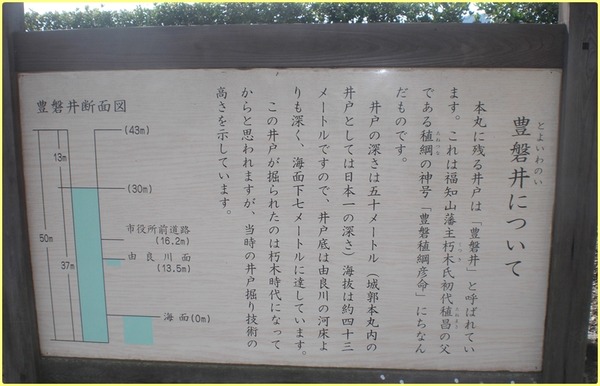 豊磐井について
とよいわのい
本丸に残る井戸は「豊磐井」と呼ばれてい
ます。これは福知山藩主朽木氏初代稙昌の父
である稙綱の神号「豊磐稙綱彦命」にちなん
だものです。
井戸の深さは五十メートル（城郭本丸内の
井戸としては日本一の深さ）海抜は約四十三
メートルですので、井戸底は由良川の河床よ
りも深く、海面下七メートルに達しています。
この井戸が掘られたのは朽木時代になって
からと思われますが、当時の井戸掘り技術の
高さを示しています。
豊磐井断面図
(43m)
13m
(30m)
市役所前道路
(16.2m)
50m
由良川面
(13.5m)
37m
海面(0m)